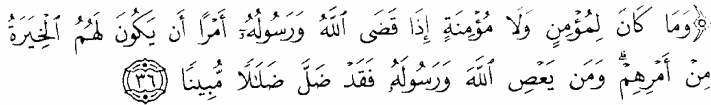 ﴿وَمَا كَانَ لِمُؤۡمِنٖ وَلَا مُؤۡمِنَةٍ إِذَا قَضَى ٱللَّهُ وَرَسُولُهُۥٓ أَمۡرًا أَن يَكُونَ لَهُمُ ٱلۡخِيَرَةُ
مِنۡ أَمۡرِهِمۡۗ وَمَن يَعۡصِ ٱللَّهَ وَرَسُولَهُۥ فَقَدۡ ضَلَّ ضَلَٰلٗا مُّبِينٗا ٣٦